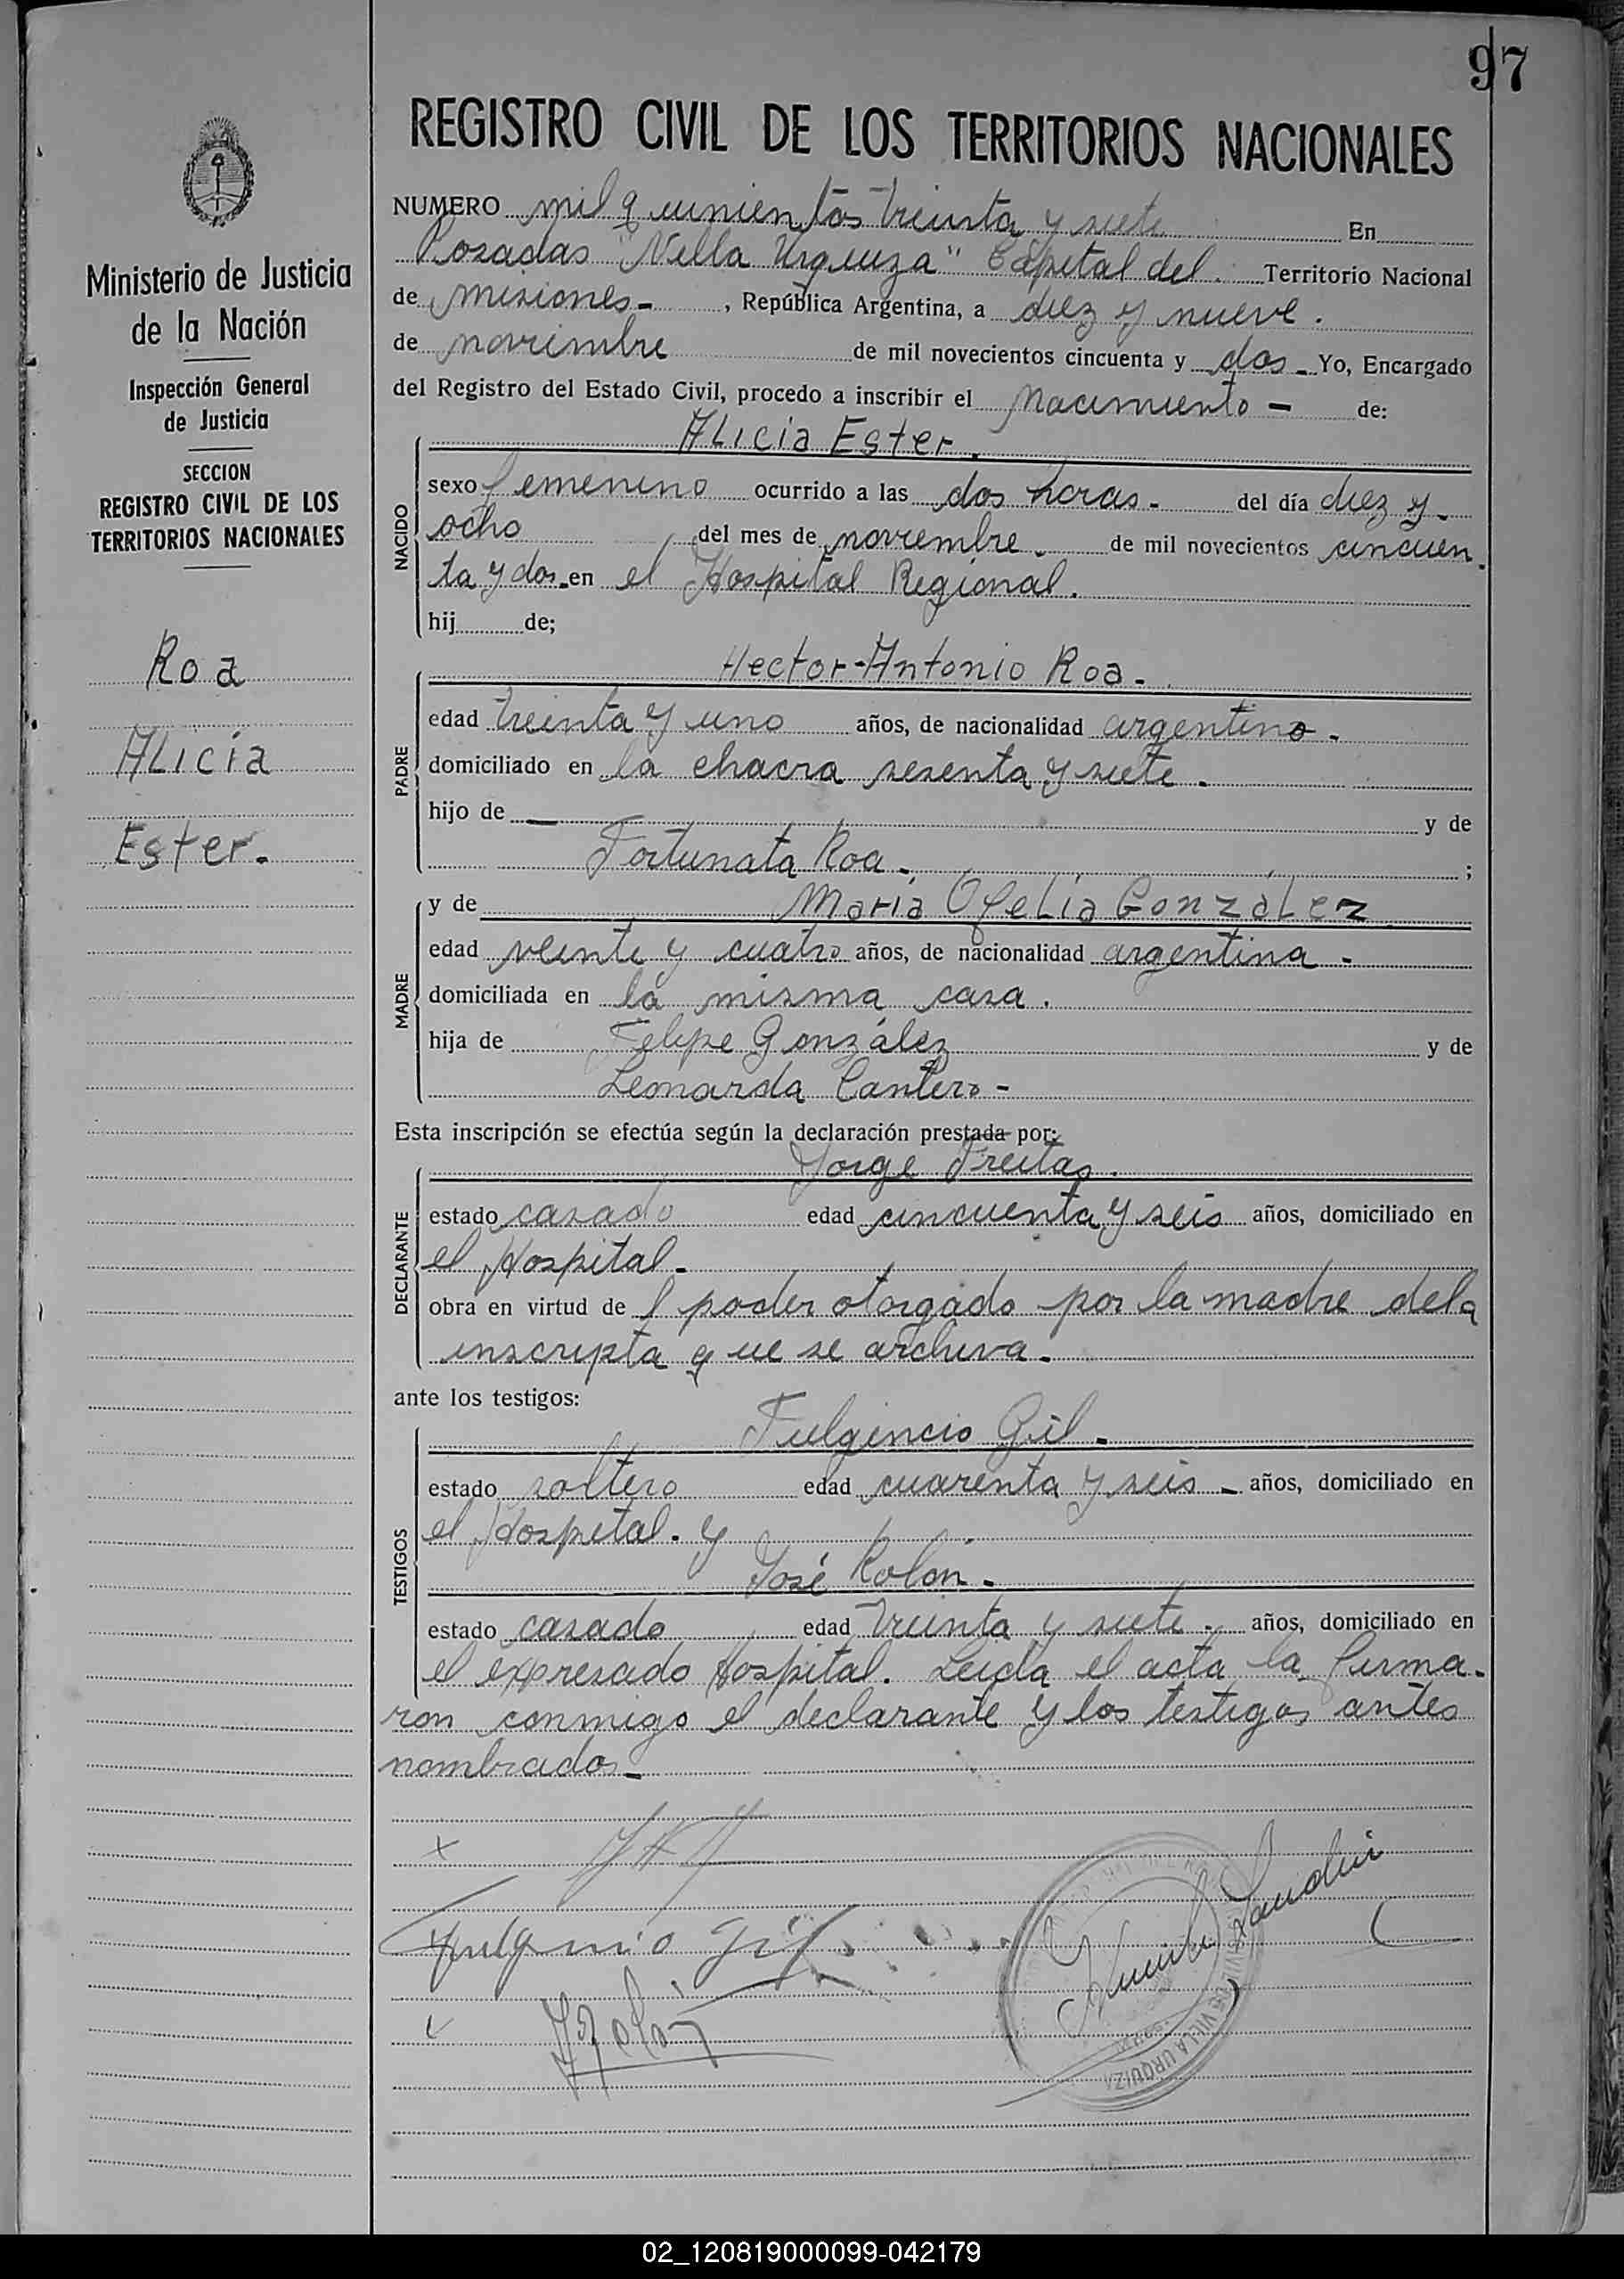 97
REGISTRO CIVIL DE LOS TERRITORIOS NACIONALES
Ministerio de Justicia
de la Nación
Inspección General
de Justicia
SECCION
REGISTRO CIVIL DE LOS
TERRITORIOS NACIONALES
Roa
Alicia
Ester.
NUMERO mil quinientos treinta y siete En
Posadas "Villa Urquiza" Capital del Territorio Nacional
de misiones - , República Argentina, a diez y nueve.
de noviembre de mil novecientos cincuenta y dos - Yo, Encargado
del Registro del Estado Civil, procedo a inscribir el Nacimiento - de:
NACIDO
Alicia Ester.
sexo femenino ocurrido a las dos horas - del día diez y
ocho del mes de noviembre - de mil novecientos cincuen
ta y dos - en el Hospital Regional.
hij de;
PADRE
Hector-Antonio Roa -
edad treinta y uno años, de nacionalidad argentino -
domiciliado en la chacra sesenta y siete.
hijo de — y de
Fortunata Roa - ;
MADRE
y de Maria Ofelia González
edad veinte y cuatro años, de nacionalidad argentina -
domiciliada en la misma casa.
hija de Felipe González y de
Leonarda Cantero -
Esta inscripción se efectúa según la declaración prestada por:
DECLARANTE
Jorge Freitas.
estado casado edad cincuenta y seis años, domiciliado en
el Hospital -
obra en virtud de l poder otorgado por la madre dela
inscripta que se archiva -
ante los testigos:
TESTIGOS
Fulgencio Gil -
estado soltero edad cuarenta y seis - años, domiciliado en
el Hospital. y
José Rolón -
estado casado edad treinta y siete. años, domiciliado en
el expresado Hospital. Leida el acta la firma-
ron conmigo el declarante y los testigos antes
nombrados -
Fulgencio Gil
VILLA URQUIZA
02_120819000099-042179